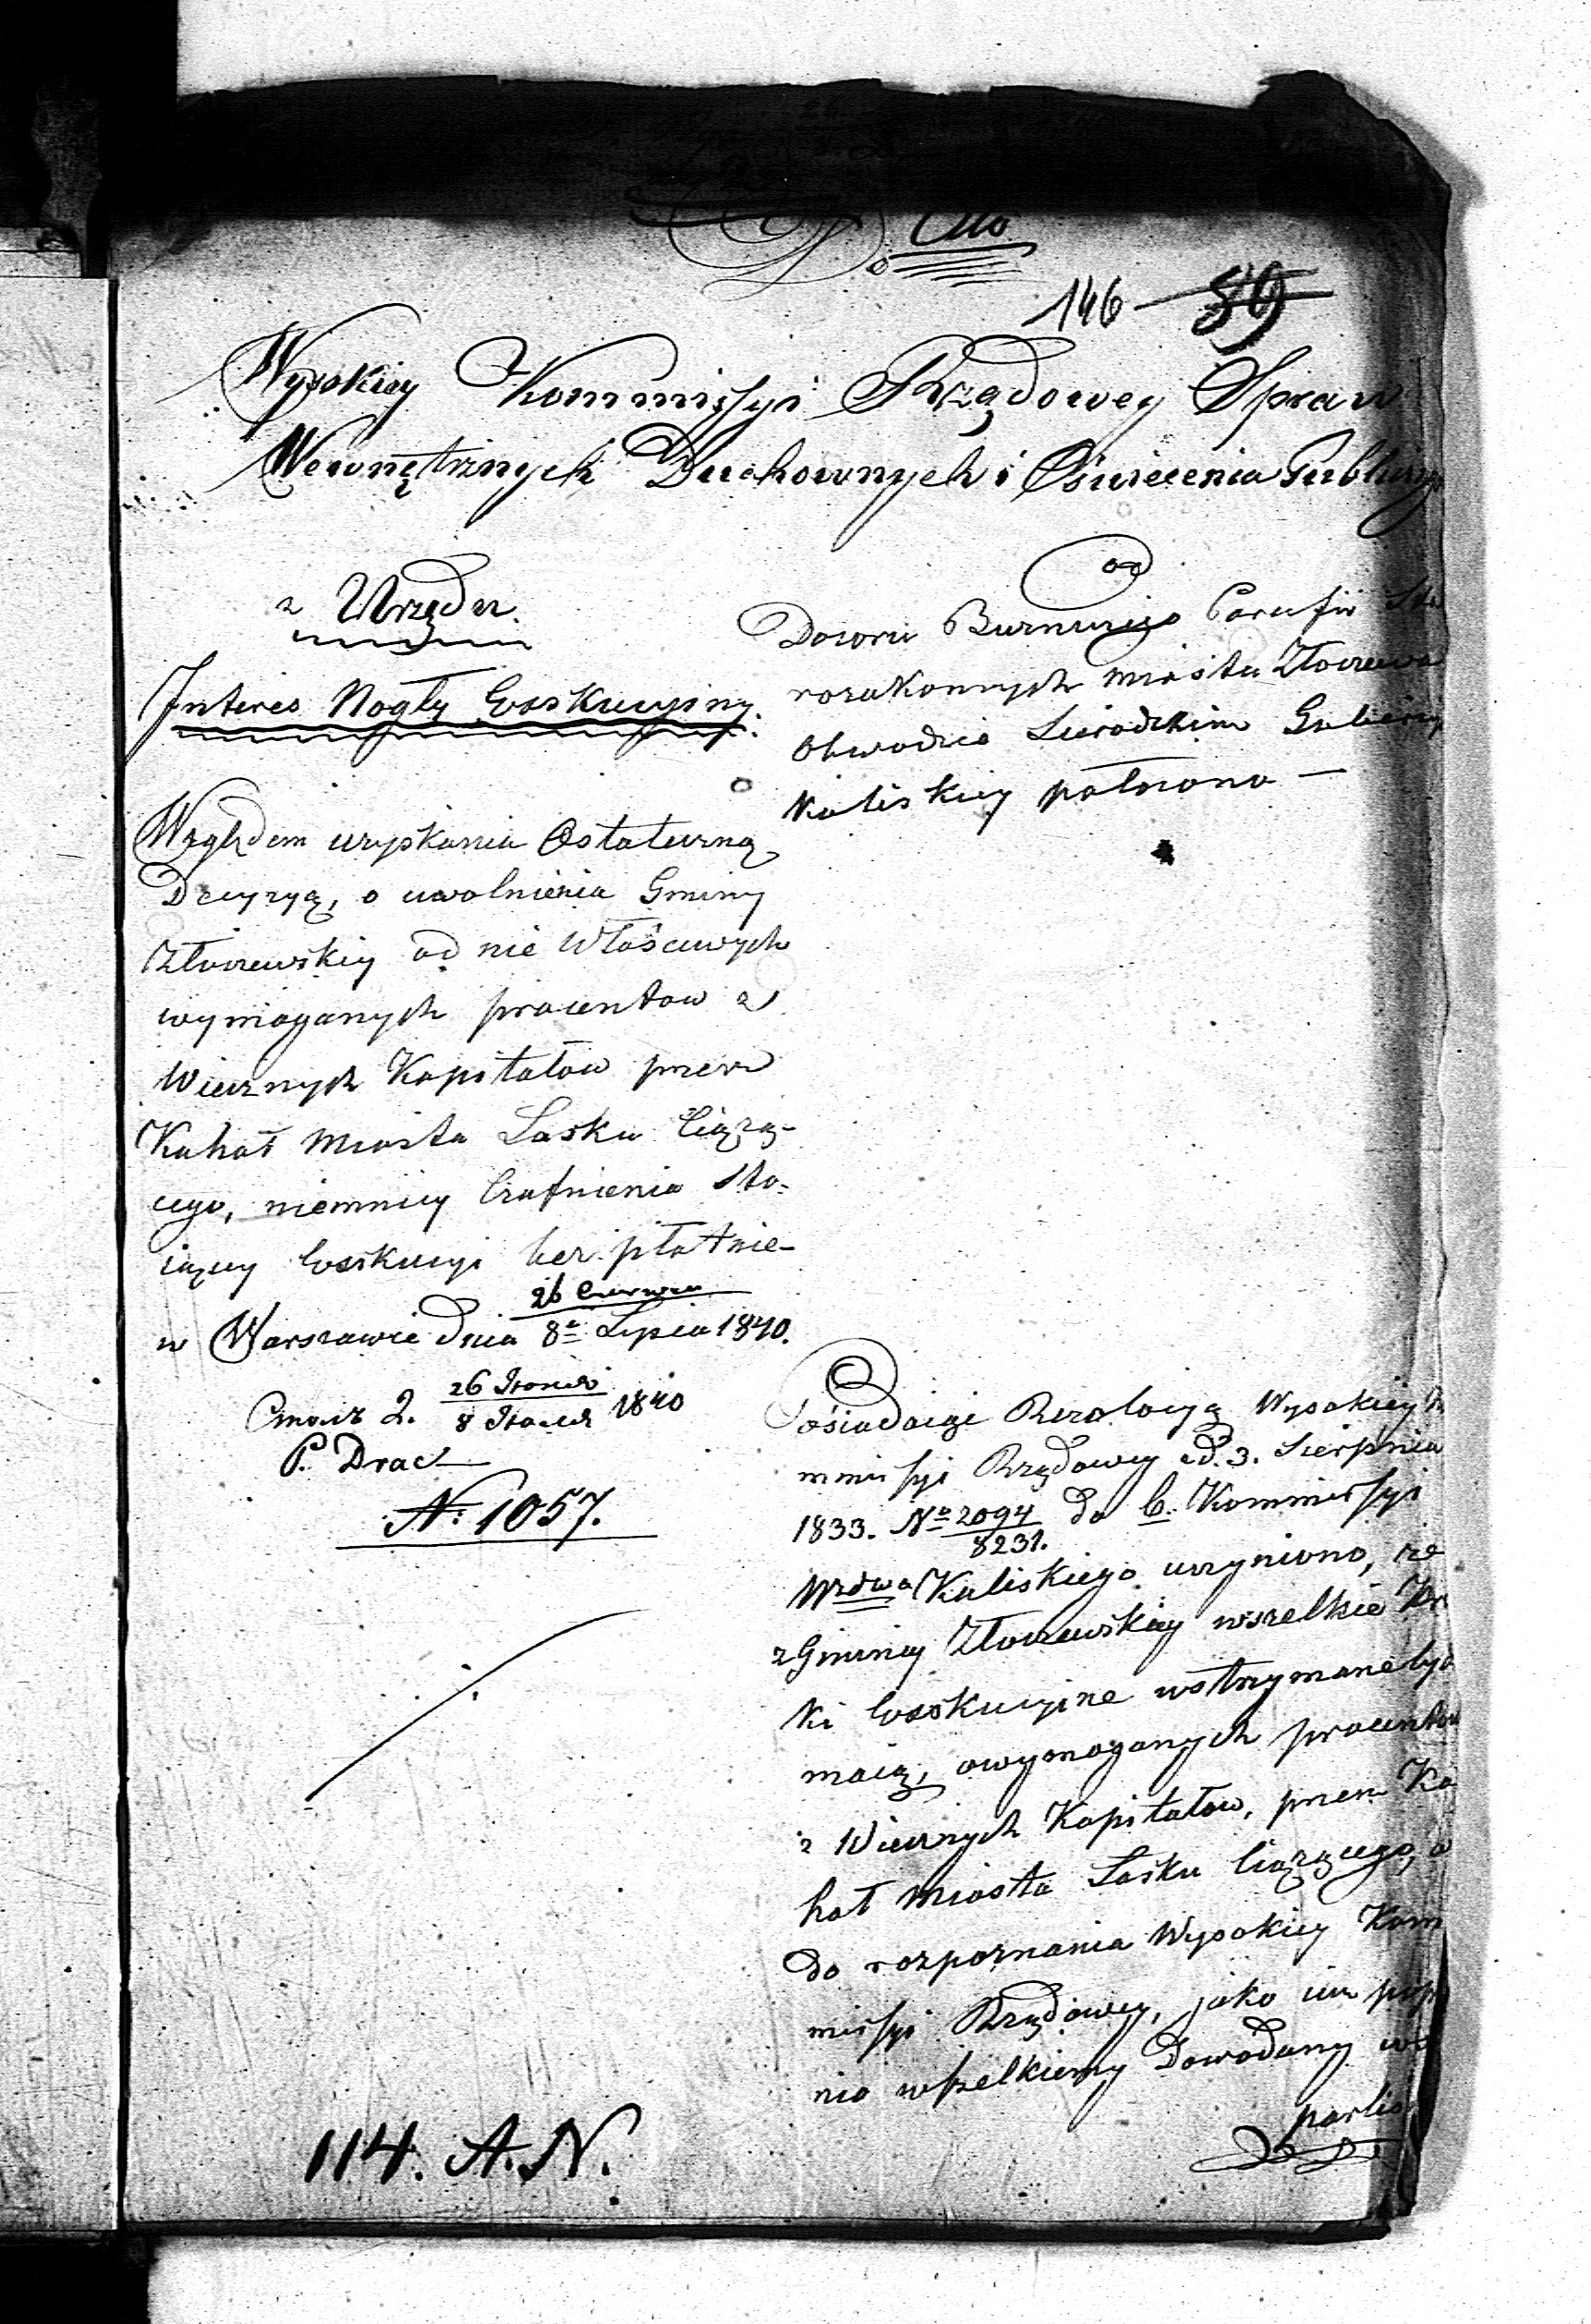 Do
146 89
Wysokiey Kommissyi Rządowey Spraw
Wewnętrznych Duchownych i Oświecenia Publiczn
z Urzędu.
Interes Nagły Exekucyiny.
Względem uzyskania Ostateczną
Decyzyą, o uwolnienia Gminy
Złoczewskiy od nie Właściwych
wymaganych procentow z
Wiecznych Kapitałow przez
Kahał Miasta Lasku Ciążą-
cego, niemniey Cofnienia sto-
iącey Exekucyi bez płatnie-
26 Czerwca
w Warszawie dnia 8º Lipca 1840.
2. 26 8 1840
P. Drac
N: 1057.
114. A.N.
od
Dozoru Bużniczego Parafii Sta
rozakonnych miasta Złoczewa
Obwodzie Sieradzkim Gubernij
Kaliskiey położono —
Posiadaiąc Rezolucyą Wysokiey Ko
mmissyi Rządowey z d. 3. Sierpnia
1833. Nº 2094/8231. do b. Kommissyi
Wzdwa Kaliskiego uczyniono, że
z Gminy Złoczewskiey wszelkie Kro
ki Exekucyine wstrzymane być
maią, o wymaganych procentow
z Wiecznych Kapitałow, przez Ka
hał Miasta Lasku Ciążącego, a
do rozpoznania Wysokiey Kom
missyi Rządowey, jako im
nio wszelkiemy Dowodamy